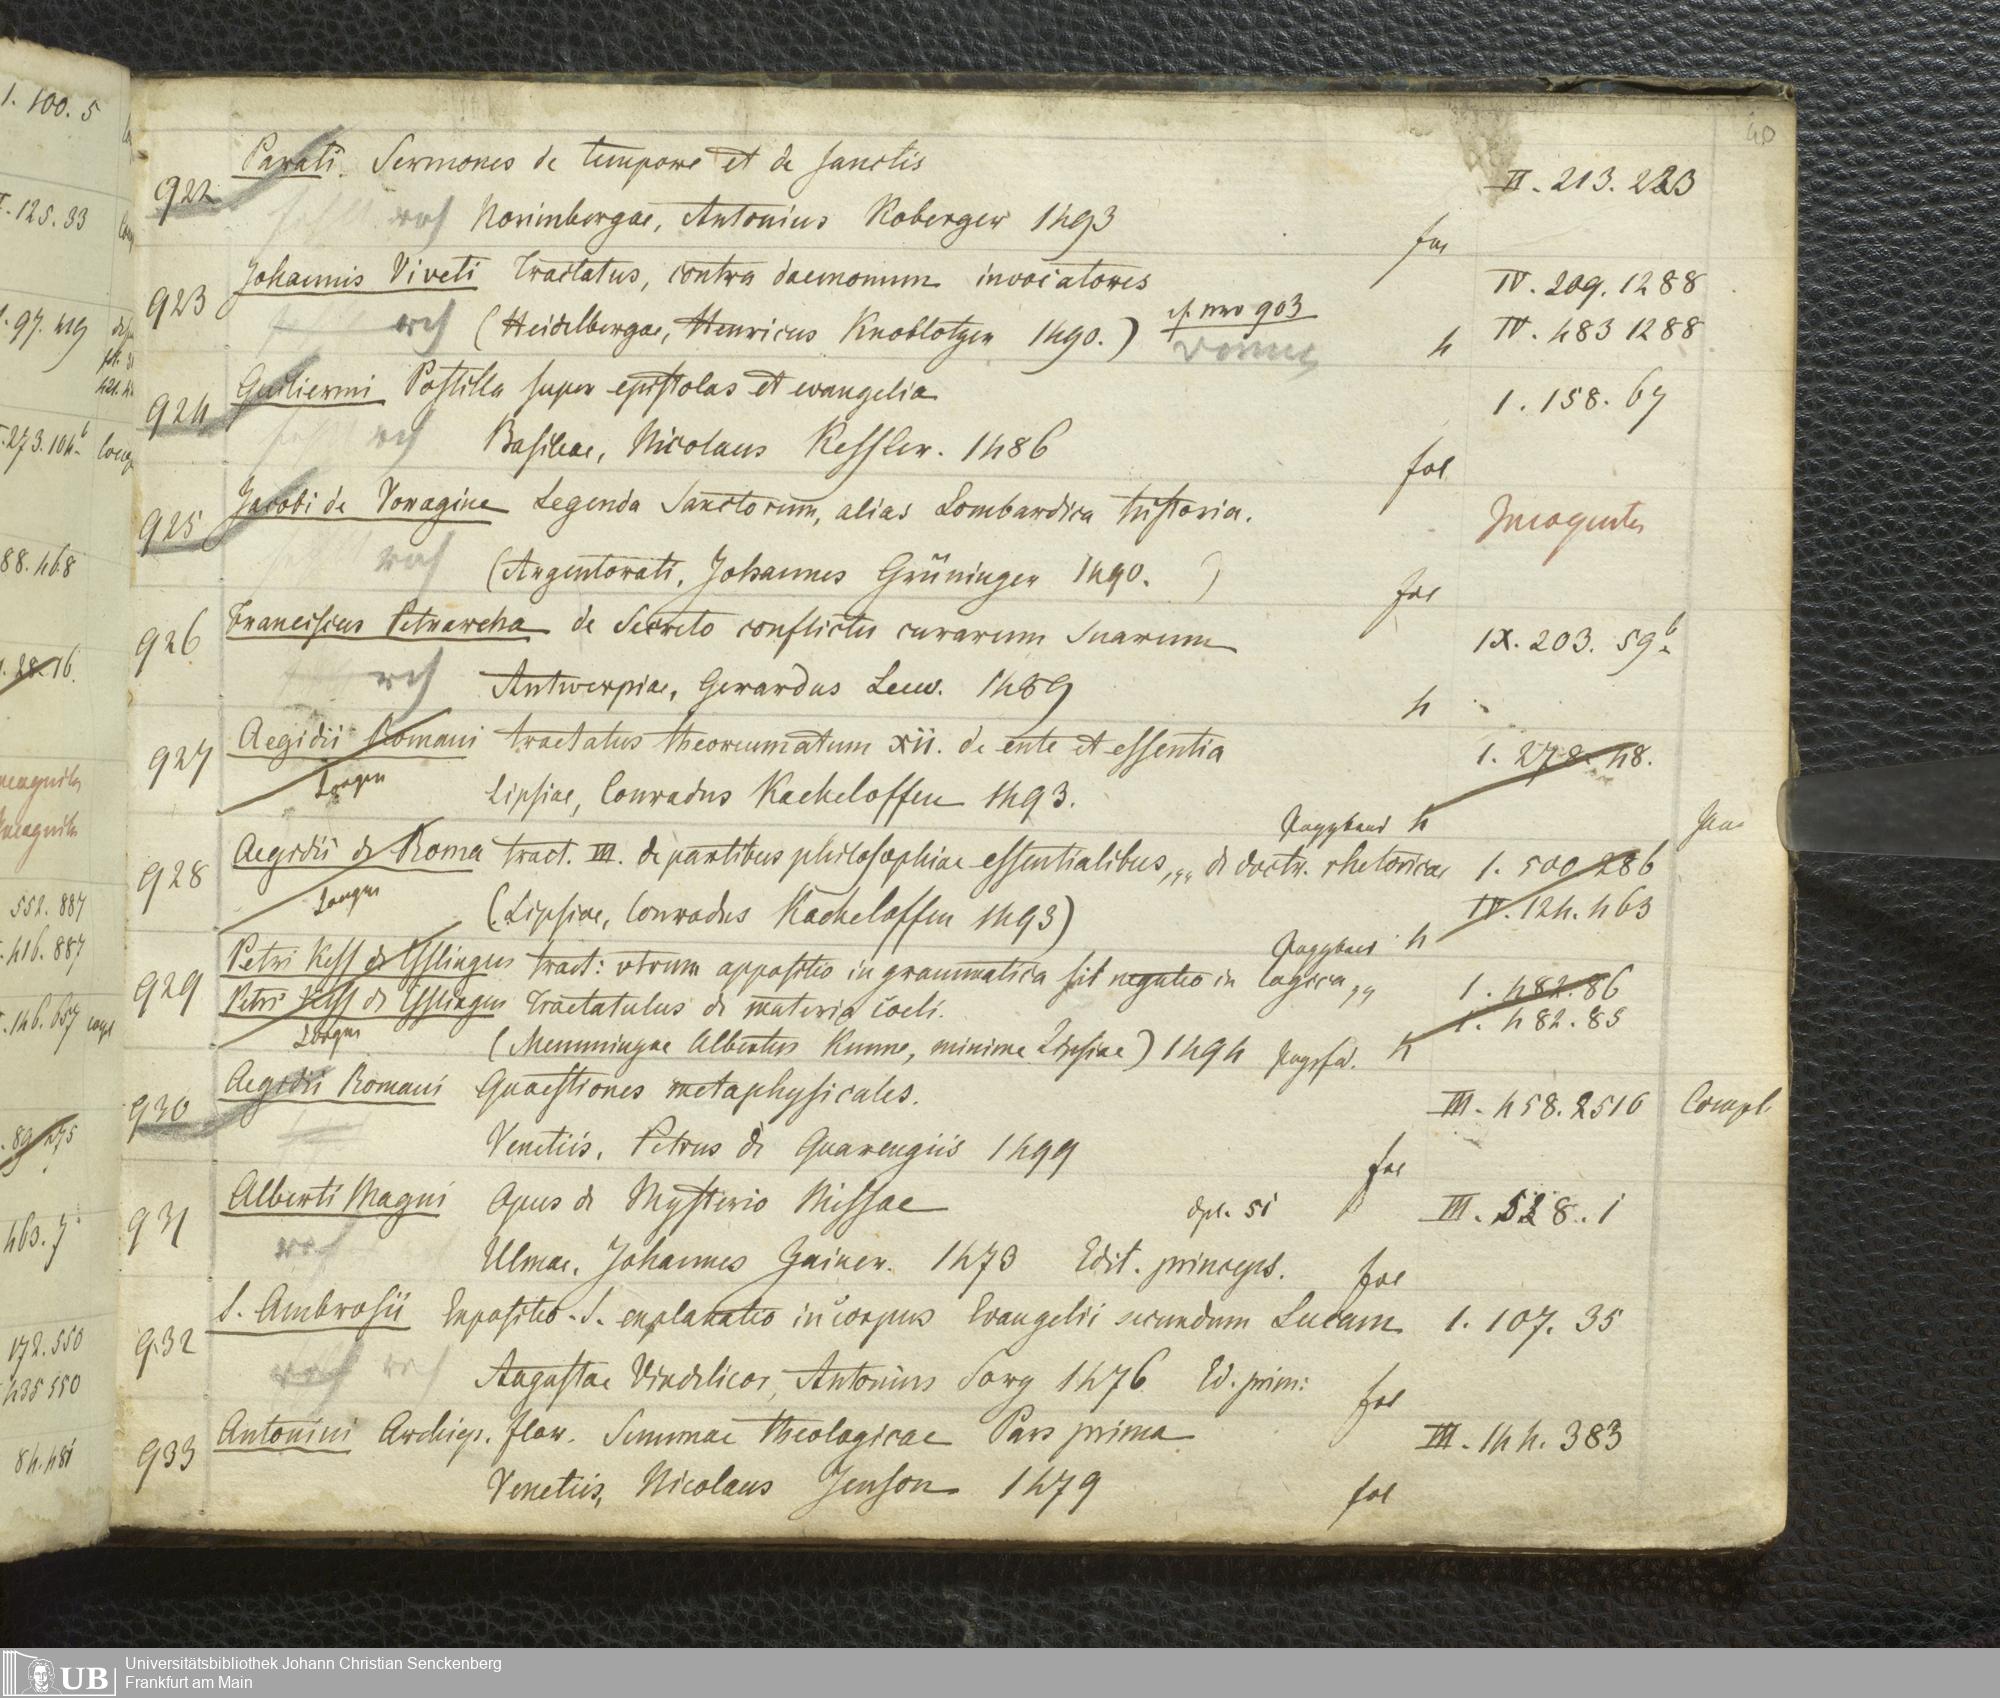 40
1. 100. 5
125. 33
97. 419
273. 104 b
88. 468
28. 16.
Incognita
552. 887
416. 887
146. 657 compl
89. 275
463. 7
172. 550
435 550
84. 481
922 Parati. Sermones de tempore et de sanctis II. 213. 223
Norimbergae, Antonius Koberger 1493 fol
923 Johannis Viveti Tractatus, contra daemonum invocatores IV. 209. 1288
(Heidelbergae, Henricus Knoblotzer 1490.) cf. nro 903 4 IV. 483 1288
924 Guiliermi Postilla super epistolas et evangelia 1. 158. 67
Basileae, Nicolaus Kessler. 1486 fol
925 Jacobi de Voragine Legenda Sanctorum, alias Lombardica historia. Incognita
(Argentorati, Johannes Grüninger 1490. ) fol
926 Franciscus Petrarcha de Secreto conflictu curarum Suarum IX. 203. 59 b.
Antwerpiae, Gerardus Leeu. 1489 4
927 Aegidii Romani tractatus theoreumatum xii. de ente et essentia 1. 278. 48.
Lipsiae, Conradus Kacheloffen 1493. Pappband 4
928 Aegidii de Roma tract. III. de partibus philosophiae essentialibus,,, de doctr. rhetoricae 1. 500 286
(Lipsiae, Conradus Kacheloffen 1493) Pappband 4 IV. 124. 463
929 Petri Kess de Esslingus tract: utrum appositio in grammatica sit negatio in logica,, 1. 482. 86
Petri Kess de Esslingus Tractatulus de materia coeli. 1. 482. 85
(Memmingae Albertus Kunne, minime Lipsiae) 1494 4
930 Aegidii Romani Quaestiones metaphysicales. III. 458. 2516 Compl.
Venetiis, Petrus de Quarengiis 1499 fol
931 Alberti Magni Opus de Mysterio Missae dpl. 51 III. 528. 1
Ulmae, Johannes Zainer. 1473 Edit. princeps. fol
932 S. Ambrosii Expositio. S. explanatio in corpus Evangelii secundum Lucam 1. 107. 35
Augustae Vindelicor, Antonius Sorg 1476 Ed. prim: fol
933 Antonini Archiep. flor. Summae theologicae Pars prima III. 144. 383
Venetiis, Nicolaus Jenson 1479 fol
UB Universitätsbibliothek Johann Christian Senckenberg
Frankfurt am Main